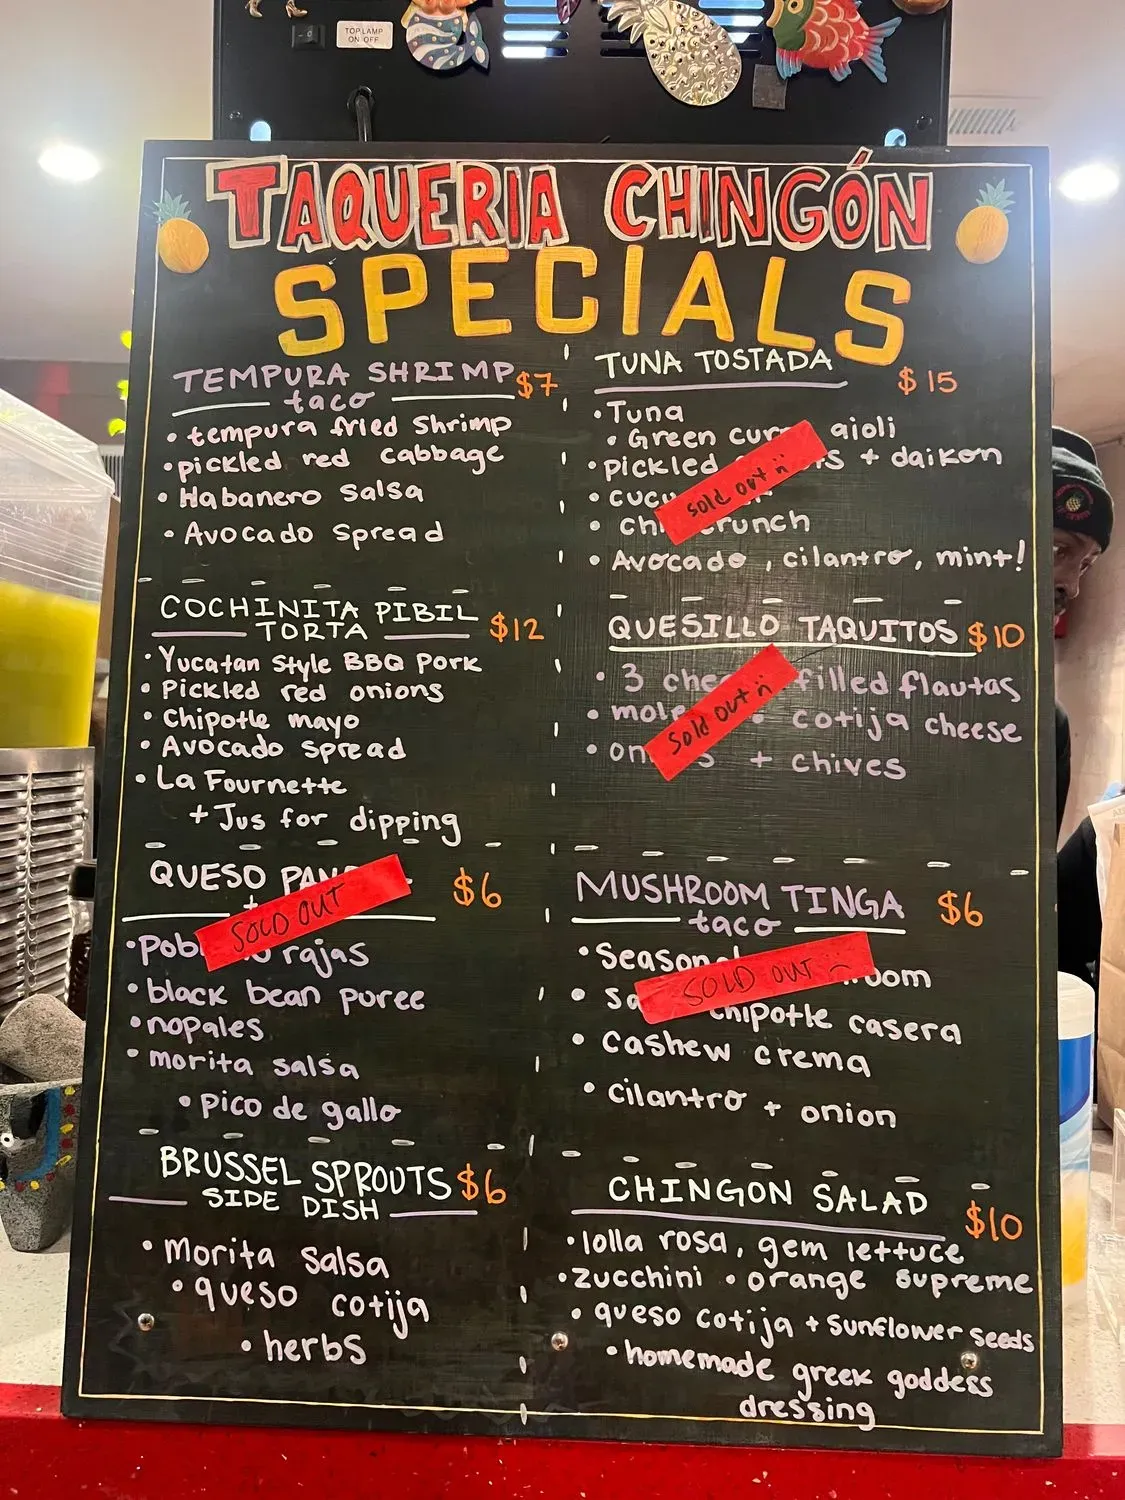 TOP LAMP
ON OFF
TAQUERIA CHINGÓN
SPECIALS
TEMPURA SHRIMP $7
taco
• tempura fried shrimp
• pickled red cabbage
• Habanero salsa
• Avocado spread
COCHINITA PIBIL
TORTA $12
• Yucatan style BBQ pork
• Pickled red onions
• Chipotle mayo
• Avocado spread
• La Fournette
+ Jus for dipping
QUESO $6
SOLD OUT
• rajas
• black bean puree
• nopales
• morita salsa
• pico de gallo
BRUSSEL SPROUTS $6
SIDE DISH
• Morita salsa
• queso cotija
• herbs
TUNA TOSTADA
$15
• Tuna
• Green aioli
• pickled + daikon
sold out
• crunch
• Avocado, cilantro, mint!
QUESILLO TAQUITOS $10
• 3 filled flautas
• cotija cheese
sold out
• + chives
MUSHROOM TINGA $6
taco
SOLD OUT
• chipotle casera
• cashew crema
• cilantro + onion
CHINGON SALAD
$10
• lolla rosa, gem lettuce
• zucchini • orange supreme
• queso cotija + sunflower seeds
• homemade greek goddess
dressing